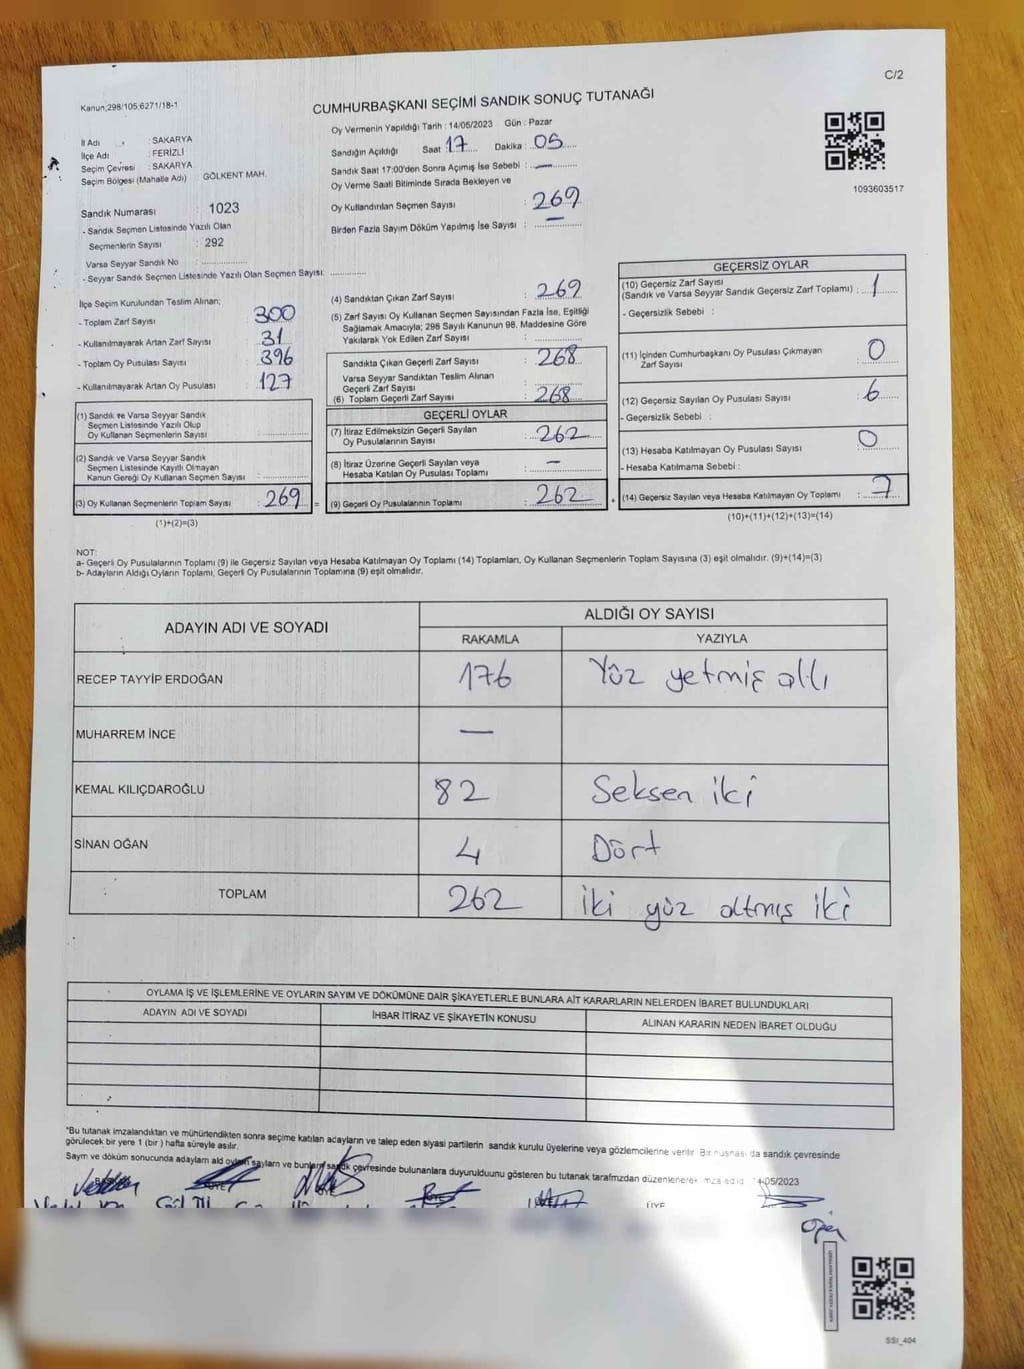 C/2
Kanun;298/105;6271/18-1
CUMHURBAŞKANI SEÇİMİ SANDIK SONUÇ TUTANAĞI
İl Adı : SAKARYA
İlçe Adı : FERİZLİ
Seçim Çevresi : SAKARYA
Seçim Bölgesi (Mahalle Adı) GÖLKENT MAH.
Sandık Numarası 1023
- Sandık Seçmen Listesinde Yazılı Olan
Seçmenlerin Sayısı : 292
Varsa Seyyar Sandık No :
- Seyyar Sandık Seçmen Listesinde Yazılı Olan Seçmen Sayısı:
Oy Vermenin Yapıldığı Tarih : 14/05/2023 Gün : Pazar
Sandığın Açıldığı Saat : 17 Dakika : 05
Sandık Saat 17:00'den Sonra Açımış İse Sebebi : —
Oy Verme Saati Bitiminde Sırada Bekleyen ve
Oy Kullandırılan Seçmen Sayısı : 269
Birden Fazla Sayım Döküm Yapılmış İse Sayısı : —
1093603517
İlçe Seçim Kurulundan Teslim Alınan;
- Toplam Zarf Sayısı : 300
- Kullanılmayarak Artan Zarf Sayısı : 31
- Toplam Oy Pusulası Sayısı : 396
- Kullanılmayarak Artan Oy Pusulası : 127
(1) Sandık ve Varsa Seyyar Sandık
Seçmen Listesinde Yazılı Olup
Oy Kullanan Seçmenlerin Sayısı :
(2) Sandık ve Varsa Seyyar Sandık
Seçmen Listesinde Kayıtlı Olmayan
Kanun Gereği Oy Kullanan Seçmen Sayısı :
(3) Oy Kullanan Seçmenlerin Toplam Sayısı : 269 =
(1)+(2)=(3)
(4) Sandıktan Çıkan Zarf Sayısı : 269
(5) Zarf Sayısı Oy Kullanan Seçmen Sayısından Fazla İse, Eşitliği
Sağlamak Amacıyla; 298 Sayılı Kanunun 98. Maddesine Göre
Yakılarak Yok Edilen Zarf Sayısı :
Sandıkta Çıkan Geçerli Zarf Sayısı : 268
Varsa Seyyar Sandıktan Teslim Alınan
Geçerli Zarf Sayısı :
(6) Toplam Geçerli Zarf Sayısı : 268
GEÇERLİ OYLAR
(7) İtiraz Edilmeksizin Geçerli Sayılan
Oy Pusulalarının Sayısı : 262
(8) İtiraz Üzerine Geçerli Sayılan veya
Hesaba Katılan Oy Pusulası Toplamı : —
(9) Geçerli Oy Pusulalarının Toplamı : 262 +
GEÇERSİZ OYLAR
(10) Geçersiz Zarf Sayısı
(Sandık ve Varsa Seyyar Sandık Geçersiz Zarf Toplamı) : 1
- Geçersizlik Sebebi :
(11) İçinden Cumhurbaşkanı Oy Pusulası Çıkmayan
Zarf Sayısı : 0
(12) Geçersiz Sayılan Oy Pusulası Sayısı : 6
- Geçersizlik Sebebi :
(13) Hesaba Katılmayan Oy Pusulası Sayısı : 0
- Hesaba Katılmama Sebebi :
(14) Geçersiz Sayılan veya Hesaba Katılmayan Oy Toplamı : 7
(10)+(11)+(12)+(13)=(14)
NOT:
a- Geçerli Oy Pusulalarının Toplamı (9) ile Geçersiz Sayılan veya Hesaba Katılmayan Oy Toplamı (14) Toplamları, Oy Kullanan Seçmenlerin Toplam Sayısına (3) eşit olmalıdır. (9)+(14)=(3)
b- Adayların Aldığı Oyların Toplamı, Geçerli Oy Pusulalarının Toplamına (9) eşit olmalıdır.
ADAYIN ADI VE SOYADI ALDIĞI OY SAYISI
RAKAMLA YAZIYLA
RECEP TAYYİP ERDOĞAN 176 Yüz yetmiş altı
MUHARREM İNCE —
KEMAL KILIÇDAROĞLU 82 Seksen iki
SİNAN OĞAN 4 Dört
TOPLAM 262 iki yüz altmış iki
OYLAMA İŞ VE İŞLEMLERİNE VE OYLARIN SAYIM VE DÖKÜMÜNE DAİR ŞİKAYETLERLE BUNLARA AİT KARARLARIN NELERDEN İBARET BULUNDUKLARI
ADAYIN ADI VE SOYADI İHBAR İTİRAZ VE ŞİKAYETİN KONUSU ALINAN KARARIN NEDEN İBARET OLDUĞU
*Bu tutanak imzalandıktan ve mühürlendikten sonra seçime katılan adayların ve talep eden siyasi partilerin sandık kurulu üyelerine veya gözlemcilerine verilir. Bir nüshası da sandık çevresinde
görülecek bir yere 1 (bir) hafta süreyle asılır.
Sayım ve döküm sonucunda adayların ald oyların sayıları ve bunların sandık çevresinde bulunanlara duyurulduunu gösteren bu tutanak tarafımzdan düzenlenerek imza edildi. 14/05/2023
ÜYE
SSI_404